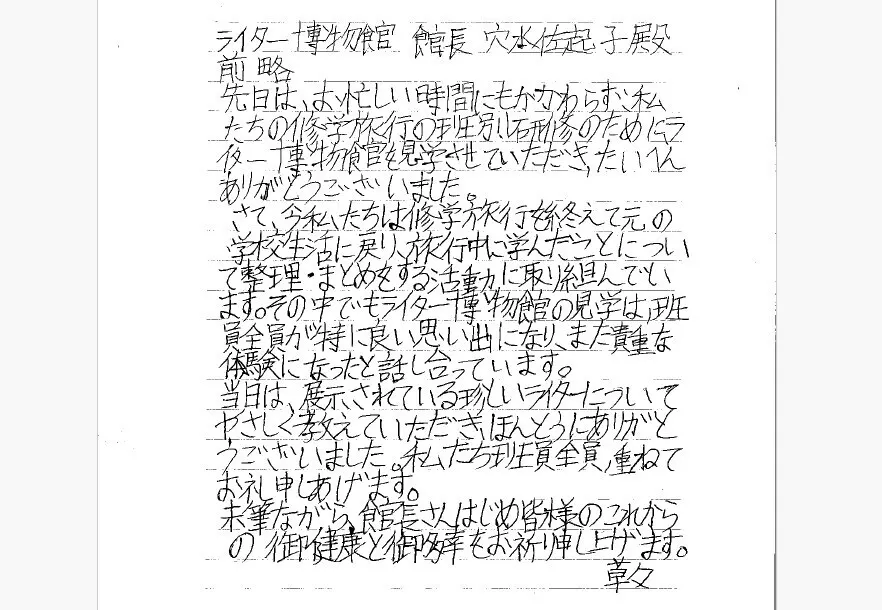 ライター博物館 館長 穴水佐起子殿
前略
先日は、お忙しい時間にもかかわらず、私
たちの修学旅行の班別研修のためにラ
イター博物館を見学させていただき、たいへん
ありがとうございました。
さて、今私たちは修学旅行を終えて元の
学校生活に戻り、旅行中に学んだことについ
て整理・まとめをする活動に取り組んでい
ます。その中でもライター博物館の見学は、班
員全員が特に良い思い出になり、また貴重な
体験になったと話し合っています。
当日は、展示されている珍しいライターについて
やさしく教えていただき、ほんとうにありがと
うございました。私たち班員全員、重ねて
お礼申しあげます。
末筆ながら、館長さんはじめ皆様のこれから
の御健康と御多幸をお祈り申し上げます。
草々